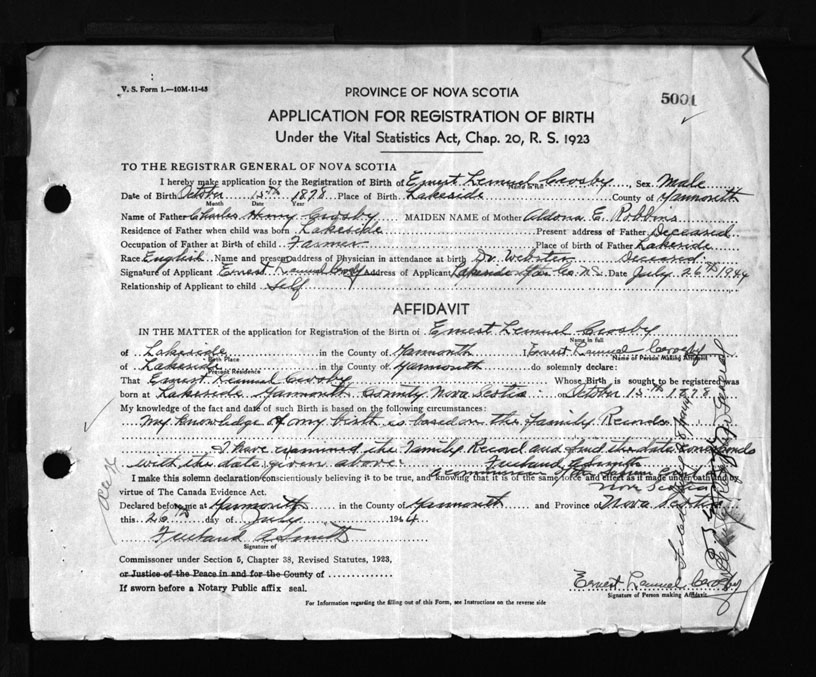 V. S. Form 1.—10M-11-43
PROVINCE OF NOVA SCOTIA
5001
APPLICATION FOR REGISTRATION OF BIRTH
Under the Vital Statistics Act, Chap. 20, R. S. 1923
TO THE REGISTRAR GENERAL OF NOVA SCOTIA
I hereby make application for the Registration of Birth of Ernest Lemuel Crosby, Sex Male
Date of Birth October 15th 1878 Place of Birth Lakeside County of Yarmouth
Month Date Year
Name of Father Charles Henry Crosby MAIDEN NAME of Mother Aldona E. Robbins
Residence of Father when child was born Lakeside Present address of Father Deceased
Occupation of Father at Birth of child Farmer Place of birth of Father Lakeside
Race English Name and present address of Physician in attendance at birth Dr. Webster Deceased
Signature of Applicant Ernest Lemuel Crosby Address of Applicant Lakeside Yar. Co. N.S. Date July 26th 1944
Relationship of Applicant to child Self
AFFIDAVIT
IN THE MATTER of the application for Registration of the Birth of Ernest Lemuel Crosby
Name in full
of Lakeside in the County of Yarmouth Ernest Lemuel Crosby
Birth Place Name of Person Making Affidavit
of Lakeside in the County of Yarmouth do solemnly declare:
Present Residence
That Ernest Lemuel Crosby Whose Birth is sought to be registered was
born at Lakeside Yarmouth County Nova Scotia on October 15th 1878
My knowledge of the fact and date of such Birth is based on the following circumstances:
My knowledge of my birth is based on the family Records
I have examined the Family Record and find the date
with the date given above
I make this solemn declaration conscientiously believing it to be true, and knowing that it is of the same force and effect as if made under oath and by
Nova Scotia
virtue of The Canada Evidence Act.
Declared before me at Yarmouth in the County of Yarmouth and Province of Nova Scotia
this 26th day of July 1944
Signature of
Commissioner under Section 5, Chapter 38, Revised Statutes, 1923,
or Justice of the Peace in and for the County of
If sworn before a Notary Public affix seal.
Ernest Lemuel Crosby
Signature of Person making Affidavit
For Information regarding the filling out of this Form, see Instructions on the reverse side